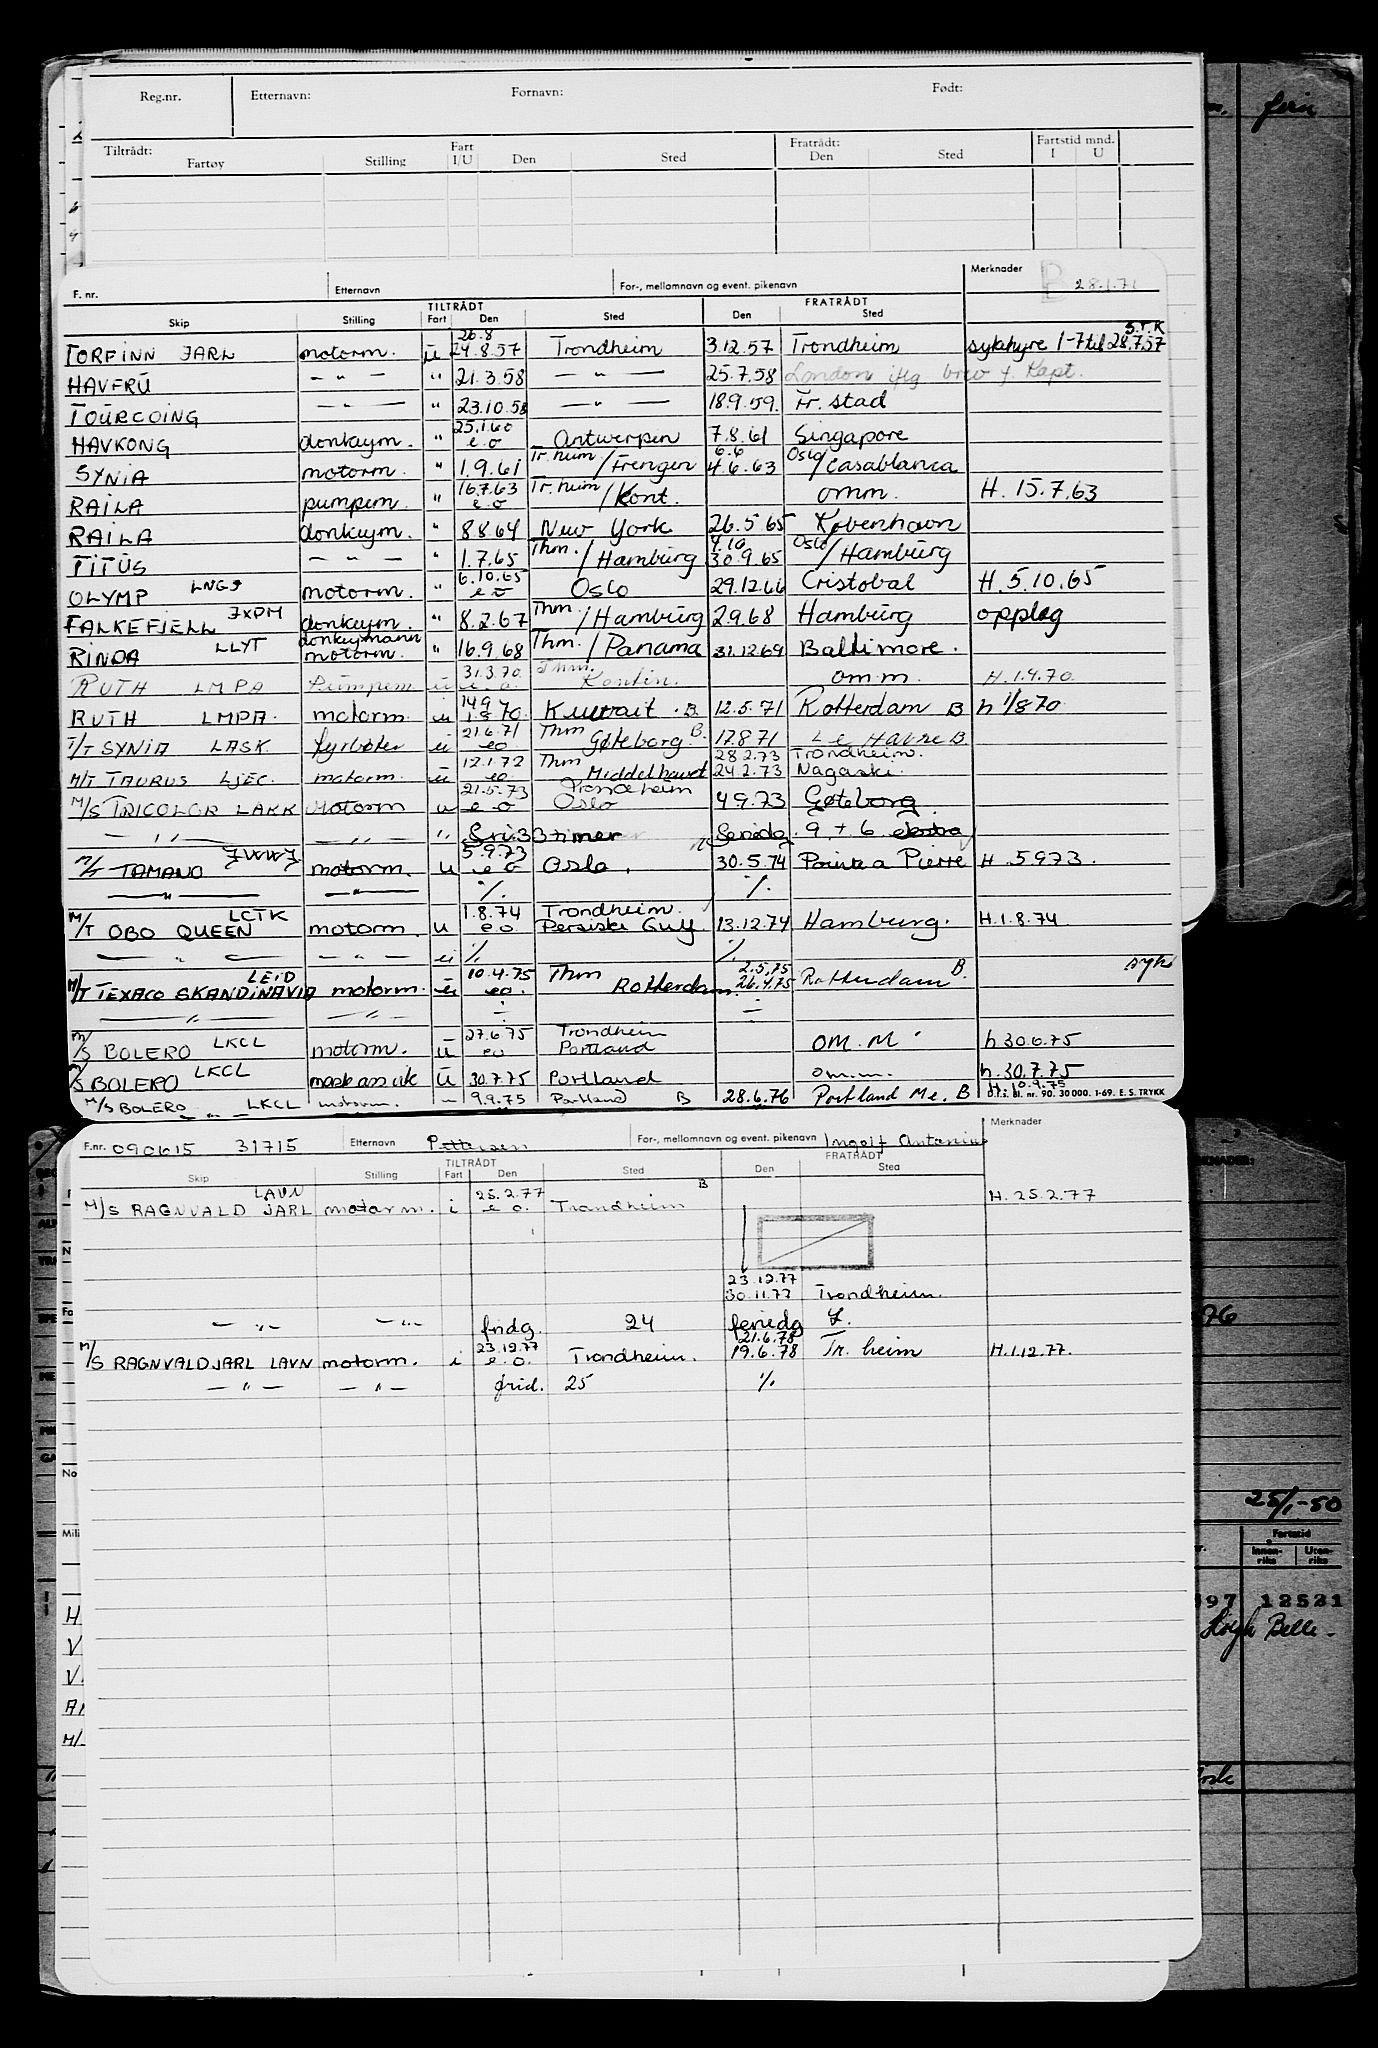 Reg.nr. Etternavn: Fornavn: Født:
Tiltrådt: Fart Fratrådt: Fartstid mnd.
Fartøy Stilling I/U Den Sted Den Sted I U
F. nr. Etternavn For-, mellomnavn og event. pikenavn Merknader B 28.1.71
TILTRÅDT FRATRÅDT
Skip Stilling Fart Den Sted Den Sted
TORFINN JARL motorm. u 26.8 24.8.57 Trondheim 3.12.57 Trondheim sykehyre 1-7 til 28.7.57 S.T.K
HAVFRU — " — " 21.3.58 — " — 25.7.58 London iflg brev f. Kapt.
TOURCOING — " — " 23.10.58 — " — 18.9.59. Fr. stad
HAVKONG donkeym. " 25.1.60 e.o Antwerpen 7.8.61 Singapore
SYNIA motorm. " 1.9.61 Tr.heim / Frengen 6.6 4.6.63 Oslo / Casablanca
RAILA pumpem. " 16.7.63 e.o Tr.heim / Kont. omm. H. 15.7.63
RAILA donkeym. " 8.8.64 New York 26.5.65 København
TITUS — " — " 1.7.65 Thm. / Hamburg 4.10 30.9.65 Oslo / Hamburg
OLYMP LNGJ motorm. " 6.10.65 e.o Oslo 29.12.66 Cristobal H. 5.10.65
FALKEFJELL JXPM donkeym. " 8.2.67 Thm. / Hamburg 2.9.68 Hamburg opplag
RINDA LLYT donkeymann motorm. " 16.9.68 Thm. / Panama 31.12.69 Baltimore.
RUTH LMPA Pumpem u 31.3.70. e.o. Thm. Kontin. omm. H. 1.4.70
RUTH LMPA. motorm. u 14.9 1.8 70. Kuwait . B 12.5.71 Rotterdam B h 1/8 70
T/T SYNIA LASK. fyrbøter u 21.6.71 eo Thm Gøteborg. B. 17.8.71 Le Havre B
M/T TAURUS LJEC. motorm. u 12.1.72 eo. Thm Middelhavet 28.2.73 24.2.73 Trondheim. Nagaski.
M/S TRICOLOR LAKK Motorm u 21.5.73 e o Trondheim Oslo 4.9.73 Gøteborg
— " — — " — " fri: 33 timer feriedg. 9 + 6 ekstra
M/T TAMANO JWWJ motorm. u 5.9.73 e o Oslo. 30.5.74 Pointe a Pierre H. 5973.
— " — — " — %. %.
M/T OBO QUEEN LCTK motorm. u 1.8.74 eo. Trondheim. Persiske Gulf. 13.12.74 Hamburg. H. 1.8.74
— " — — " — u %. %.
M/T TEXACO SKANDINAVIA LEID motorm. u 10.4.75 eo. Thm Rotterdam. 2.5.75 26.4.75 Rotterdam B. syk
— " — — " — ÷ ÷
M/S BOLERO LKCL motorm. u 27.6.75 eo Trondheim Portland OM. M h 30.6.75
M/S BOLERO LKCL mask ass vik u 30.7.75 Portland om.m. h. 30.7.75
M/S BOLERO LKCL motorm. " 9.9.75 Portland B 28.6.76 Portland Me. B H. 10.9.75
D.f.s. Bl. nr. 90. 30 000. 1-69. E. S. TRYKK
F.nr. 090615 31715 Etternavn Pettersen For-, mellomnavn og event. pikenavn Ingolf Antonius Merknader
TILTRÅDT FRATRÅDT
Skip Stilling Fart Den Sted Den Sted
M/S RAGNVALD JARL LAVN motorm. i 25.2.77 e o. Trondheim B H. 25.2.77
23.12.77
30.11.77 Trondheim.
— " — — " — fridg. 24 feriedg
M/S RAGNVALD JARL LAVN motorm. i 23.12.77 e.o. Trondheim. 21.6.78 19.6.78 Tr. heim H. 1.12.77.
— " — — " — frid. 25 %
25/1-50
Fartstid
Innen-riks Uten-riks
97 12521
Høegh Belle -